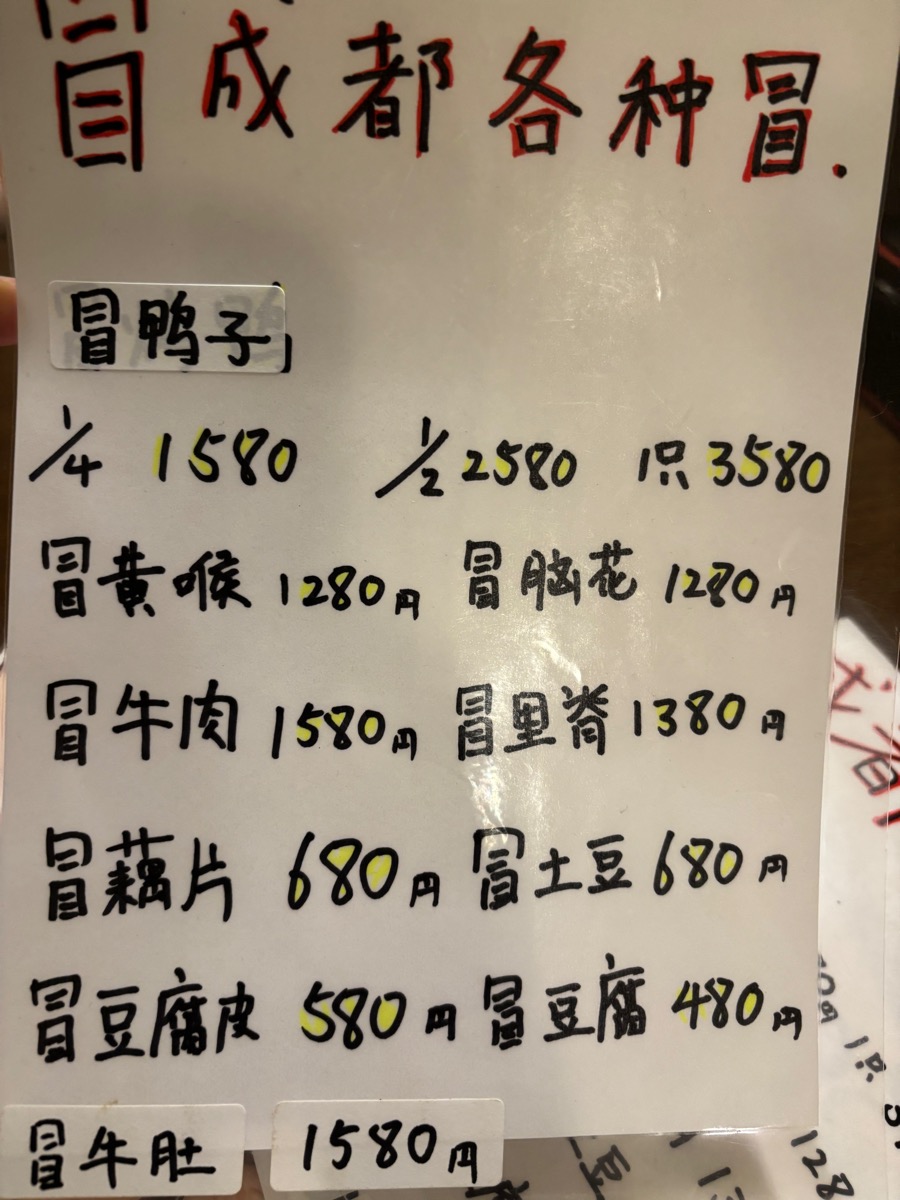 冒成都各种冒.
冒鸭子
1/4 1580 1/2 2580 1只 3580
冒黄喉 1280円 冒脑花 1280円
冒牛肉 1580円 冒里脊 1380円
冒藕片 680円 冒土豆 680円
冒豆腐皮 580円 冒豆腐 480円
冒牛肚 1580円
1只
128
豆